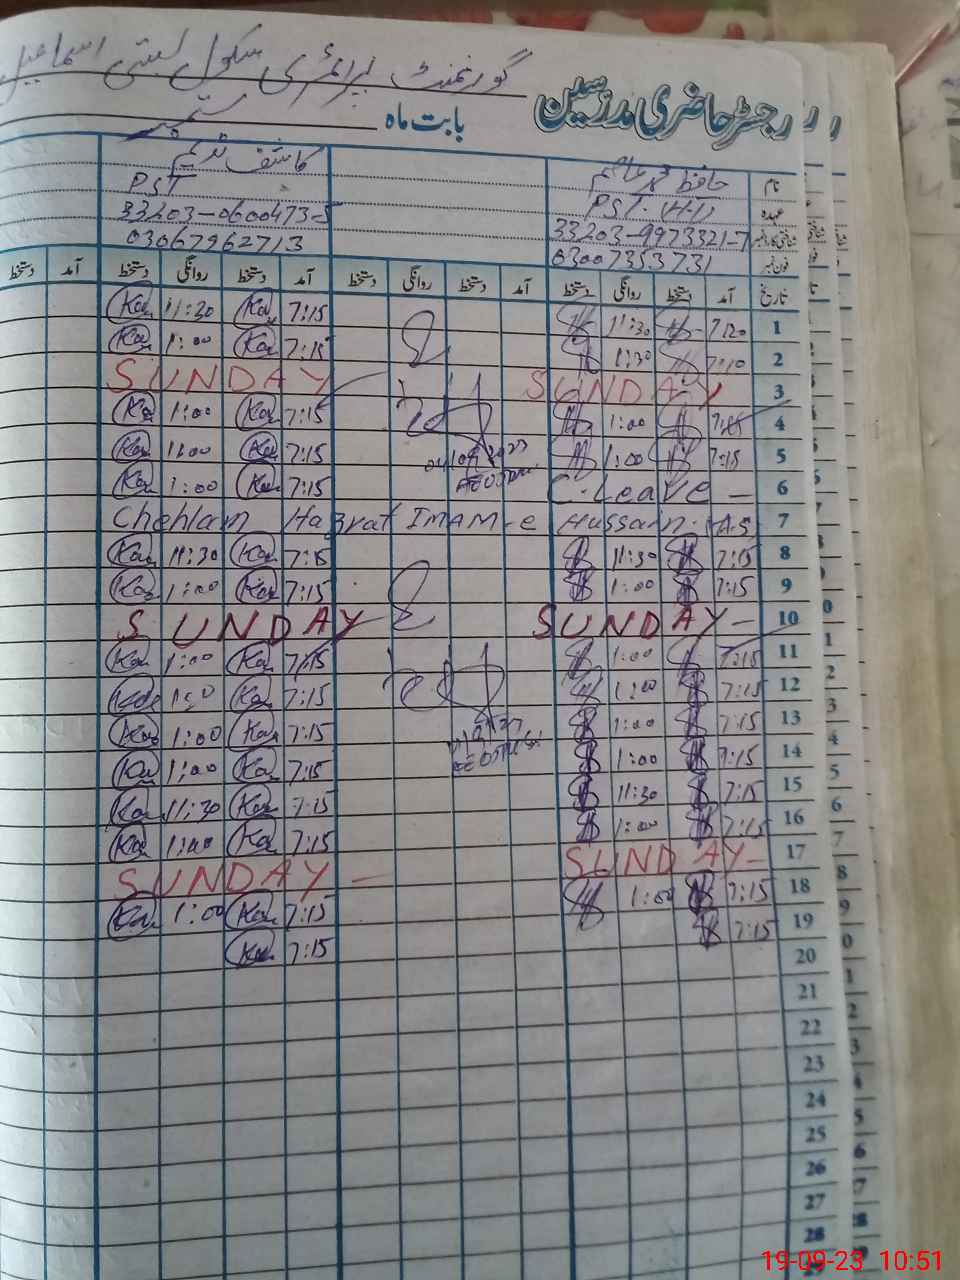 گورنمنٹ پرائمری سکول بستی اسماعیل
رجسٹر حاضری مدرسین
بابت ماہ ستمبر
نام حافظ محمد کاشف ندیم
عہدہ PST PST
33203-9973321-7 33203-0600473-5
فون نمبر 03007353731 03067962713
تاریخ آمد دستخط روانگی دستخط آمد دستخط روانگی دستخط آمد دستخط روانگی دستخط آمد دستخط
1 7:20 11:30 7:15 11:30
2 7:10 1:30 7:15 1:00
3 SUNDAY SUNDAY
4 7:15 1:00 7:15 1:00
5 7:15 1:00 7:15 1:00
6 C.Leave - 7:15 1:00
7 Chehlam Hazrat IMAM-e Hussain A.S
8 7:15 11:30 7:15 11:30
9 7:15 1:00 7:15 1:00
10 SUNDAY - SUNDAY -
11 7:15 1:00 7:15 1:00
12 7:15 1:00 7:15 1:00
13 7:15 1:00 7:15 1:00
14 7:15 1:00 7:15 1:00
15 7:15 11:30 7:15 11:30
16 7:15 1:00 7:15 1:00
17 SUNDAY - SUNDAY -
18 7:15 1:00 7:15 1:00
19 7:15 7:15
20
21
22
23
24
25
26
27
28
19-09-23 10:51